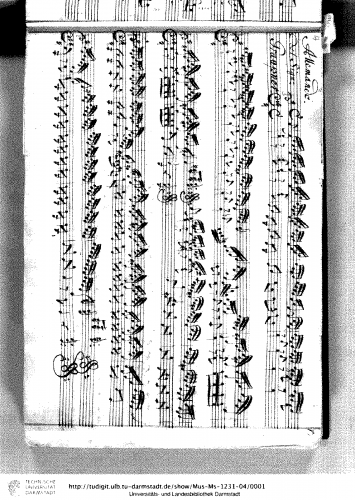 Allemande.
TECHNISCHE
UNIVERSITÄT
DARMSTADT
http://tudigit.ulb.tu-darmstadt.de/show/Mus-Ms-1231-04/0001
Universitäts- und Landesbibliothek Darmstadt